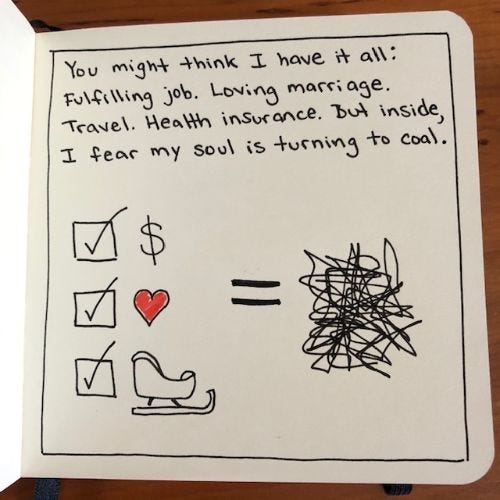 You might think I have it all:
Fulfilling job. Loving marriage.
Travel. Health insurance. But inside,
I fear my soul is turning to coal.
$
=